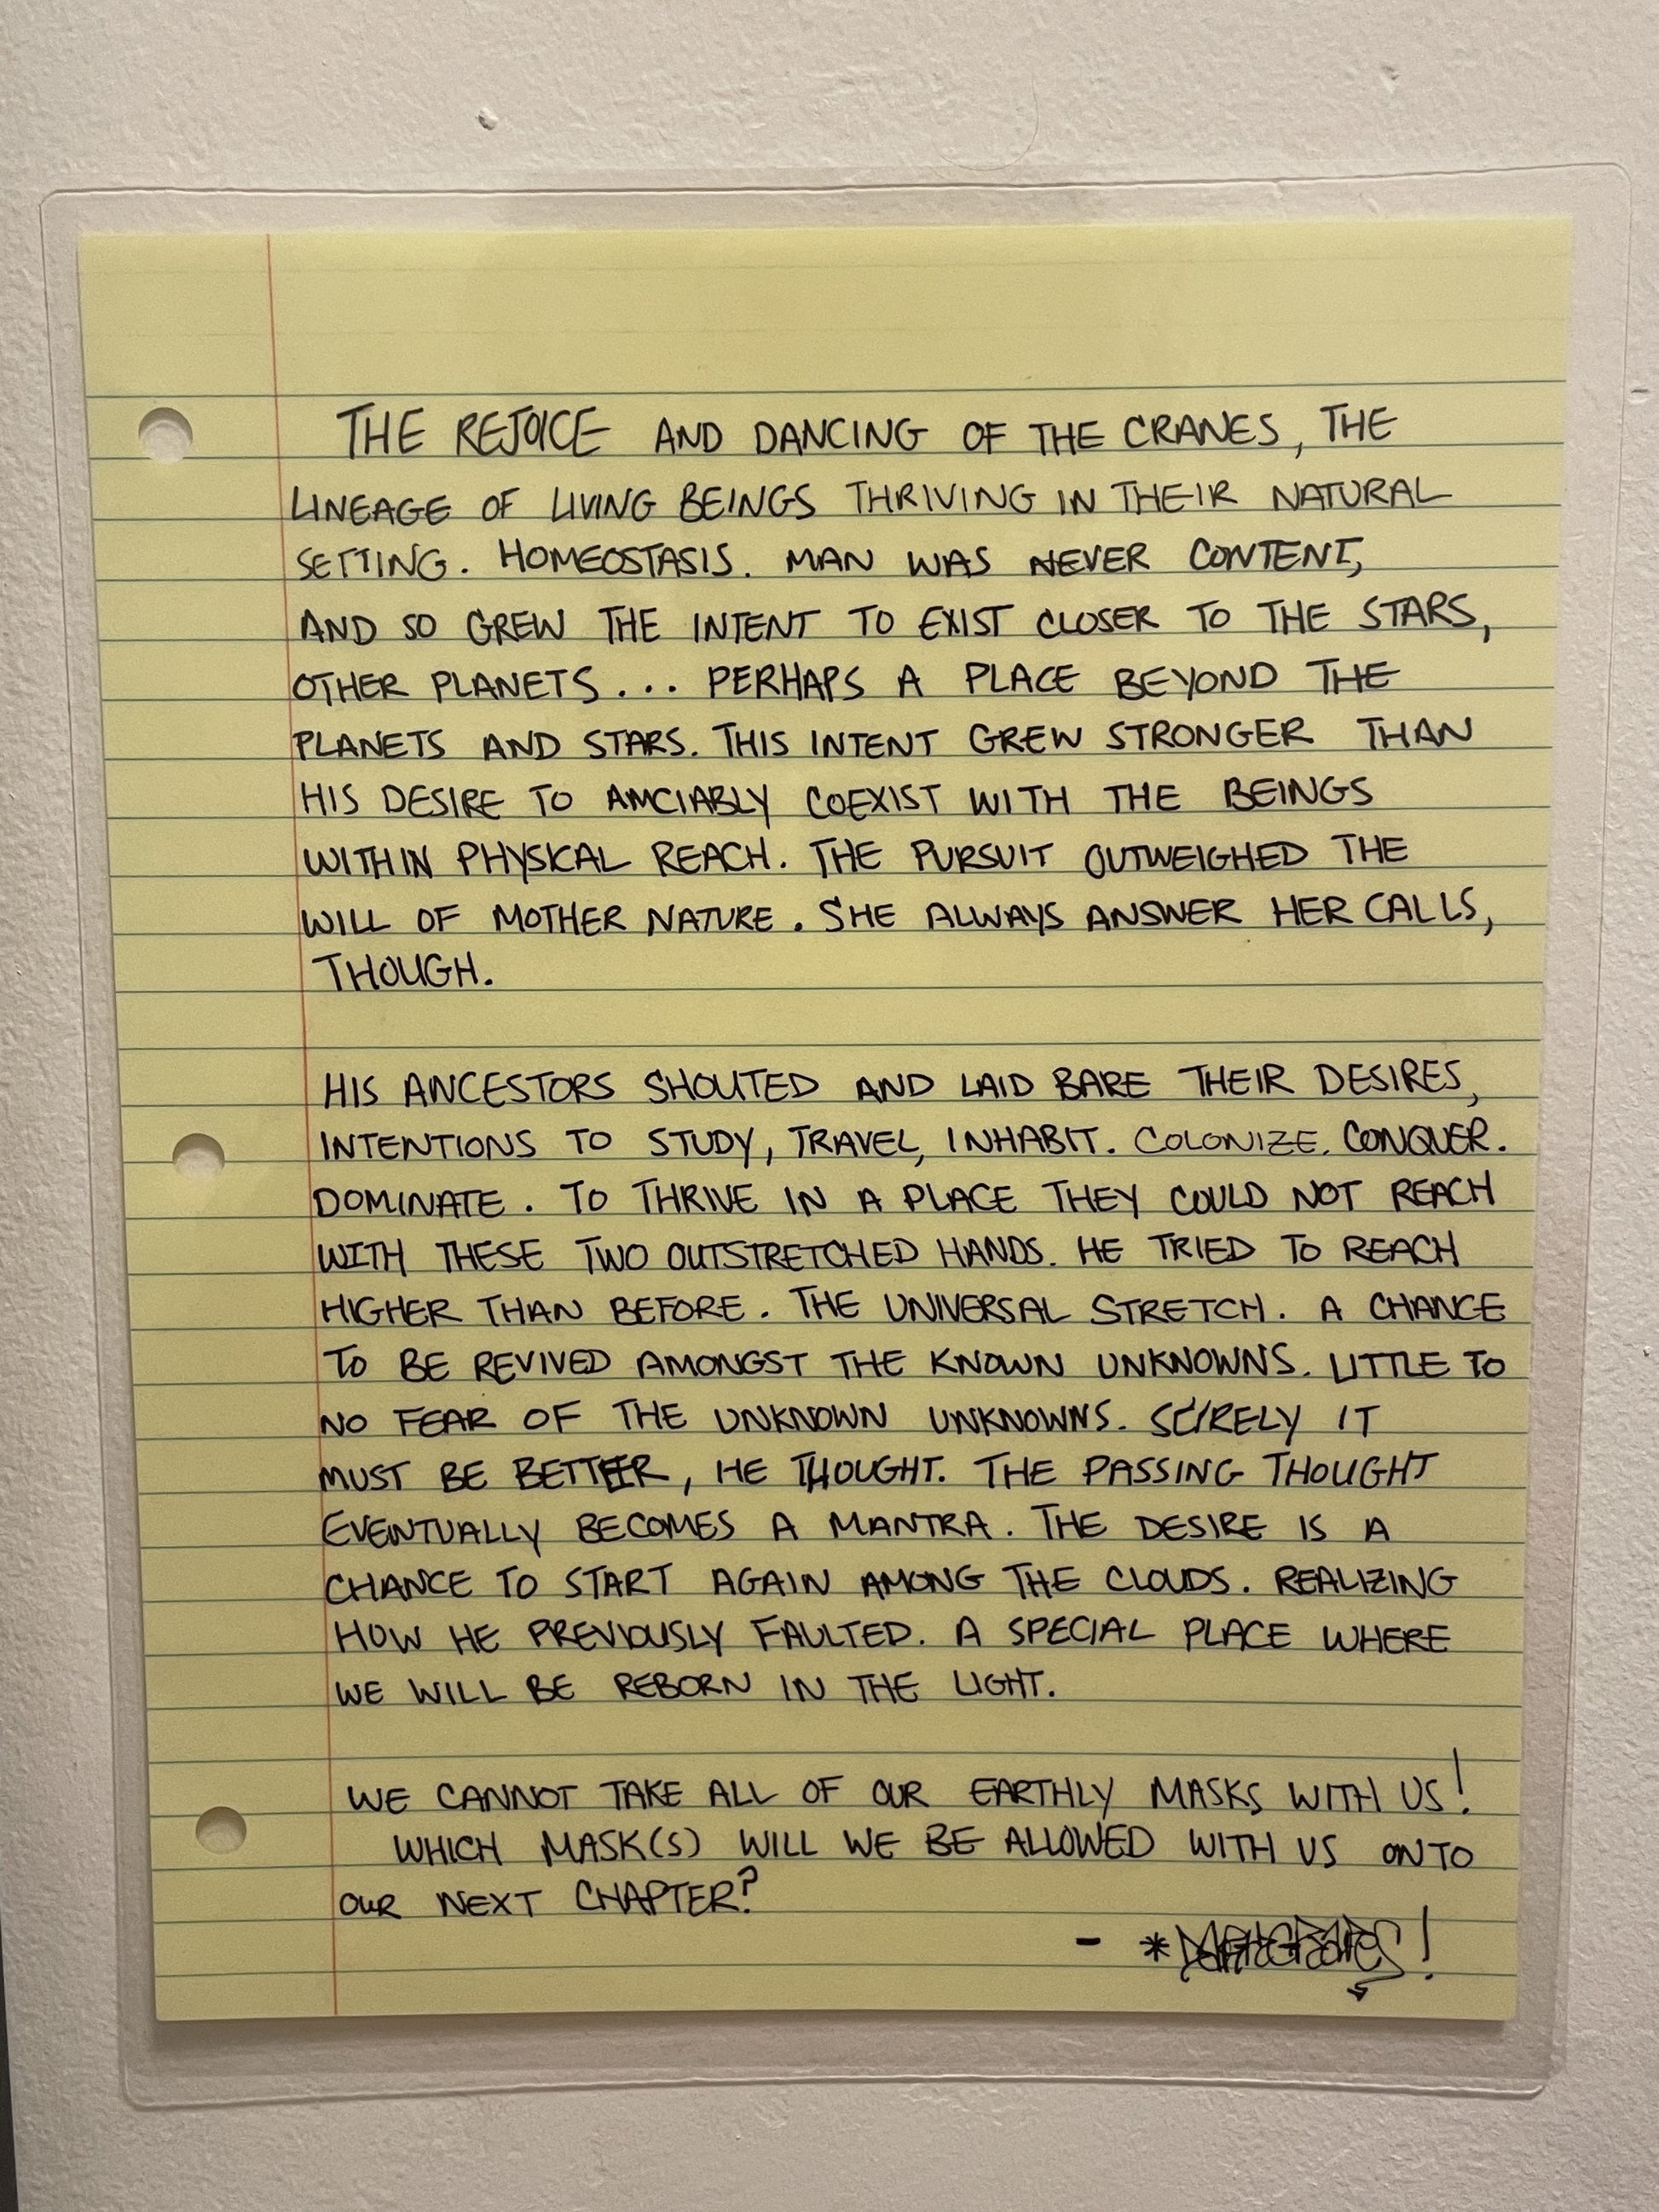 THE REJOICE AND DANCING OF THE CRANES, THE
LINEAGE OF LIVING BEINGS THRIVING IN THEIR NATURAL
SETTING. HOMEOSTASIS. MAN WAS NEVER CONTENT,
AND SO GREW THE INTENT TO EXIST CLOSER TO THE STARS,
OTHER PLANETS... PERHAPS A PLACE BEYOND THE
PLANETS AND STARS. THIS INTENT GREW STRONGER THAN
HIS DESIRE TO AMCIABLY COEXIST WITH THE BEINGS
WITHIN PHYSICAL REACH. THE PURSUIT OUTWEIGHED THE
WILL OF MOTHER NATURE. SHE ALWAYS ANSWER HER CALLS,
THOUGH.
HIS ANCESTORS SHOUTED AND LAID BARE THEIR DESIRES,
INTENTIONS TO STUDY, TRAVEL, INHABIT. COLONIZE. CONQUER.
DOMINATE. TO THRIVE IN A PLACE THEY COULD NOT REACH
WITH THESE TWO OUTSTRETCHED HANDS. HE TRIED TO REACH
HIGHER THAN BEFORE. THE UNIVERSAL STRETCH. A CHANCE
TO BE REVIVED AMONGST THE KNOWN UNKNOWNS. LITTLE TO
NO FEAR OF THE UNKNOWN UNKNOWNS. SURELY IT
MUST BE BETTER, HE THOUGHT. THE PASSING THOUGHT
EVENTUALLY BECOMES A MANTRA. THE DESIRE IS A
CHANCE TO START AGAIN AMONG THE CLOUDS. REALIZING
HOW HE PREVIOUSLY FAULTED. A SPECIAL PLACE WHERE
WE WILL BE REBORN IN THE LIGHT.
WE CANNOT TAKE ALL OF OUR EARTHLY MASKS WITH US!
WHICH MASK(S) WILL WE BE ALLOWED WITH US ONTO
OUR NEXT CHAPTER?